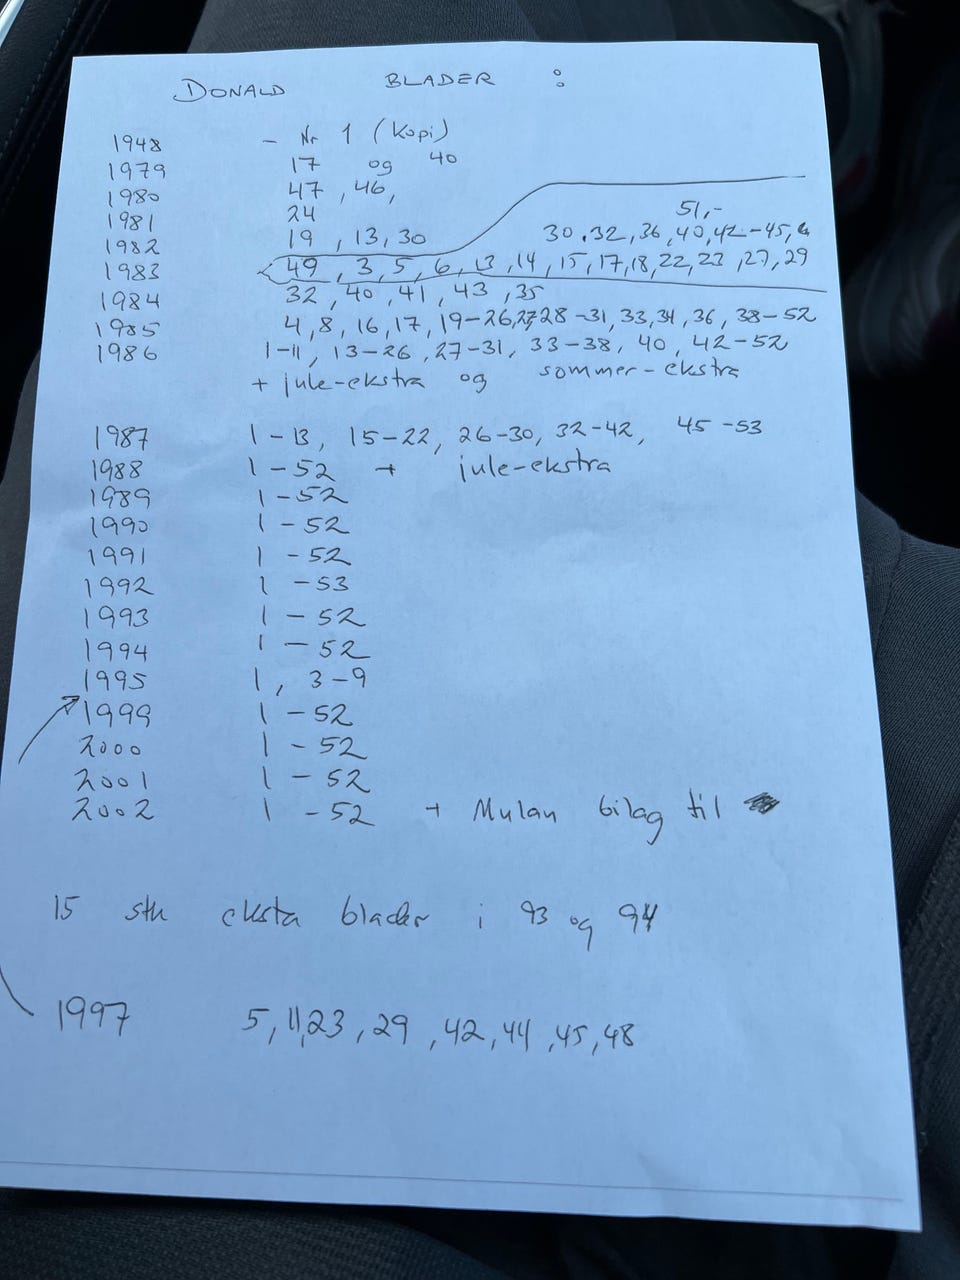 DONALD BLADER :
1948 - Nr 1 (Kopi)
1979 17 og 40
1980 47, 46,
1981 24
1982 19, 13, 30
51,-
30, 32, 36, 40, 42-45,
1983 49, 3, 5, 6, 13, 14, 15, 17, 18, 22, 23, 27, 29
1984 32, 40, 41, 43, 35
1985 4, 8, 16, 17, 19-26, 27, 28-31, 33, 34, 36, 38-52
1986 1-11, 13-26, 27-31, 33-38, 40, 42-52
+ jule-ekstra og sommer-ekstra
1987 1-13, 15-22, 26-30, 32-42, 45-53
1988 1-52 + jule-ekstra
1989 1-52
1990 1-52
1991 1-52
1992 1-53
1993 1-52
1994 1-52
1995 1, 3-9
1999 1-52
2000 1-52
2001 1-52
2002 1-52 + Mulan bilag til
15 stk eksta blader i 93 og 94
1997 5, 11, 23, 29, 42, 44, 45, 48